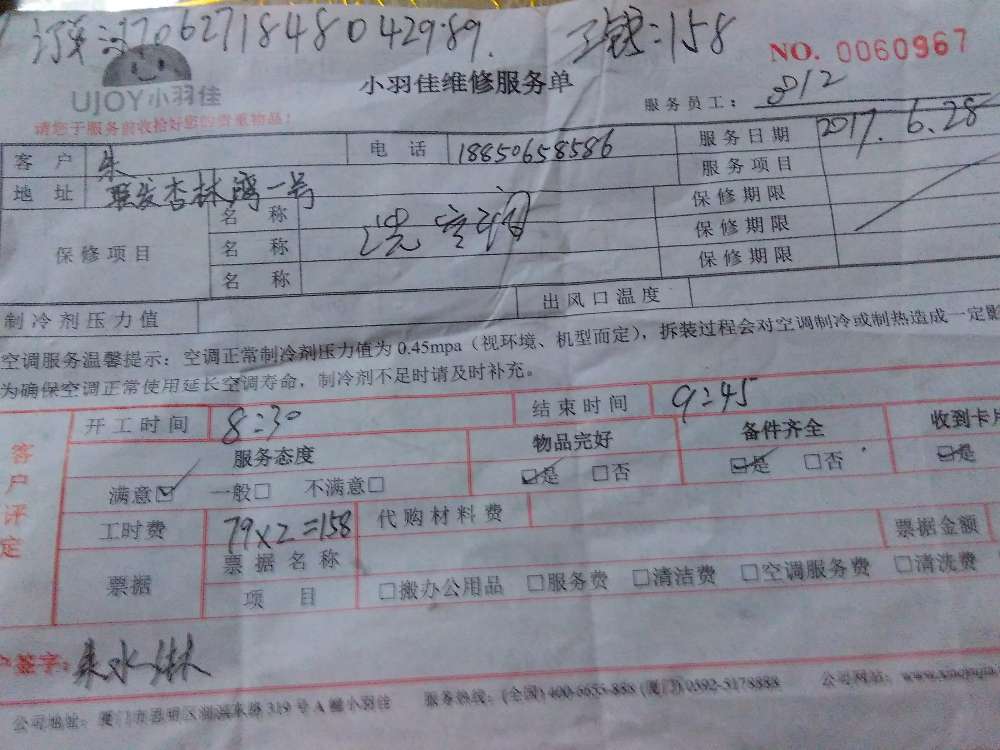 订单:170627184804 29.89. 工钱:158
NO. 0060967
UJOY小羽佳
小羽佳维修服务单
服务员工: 812
请您于服务前收拾好您的贵重物品!
客户 朱 电话 18850658586 服务日期 2017.6.28
服务项目
地址 联发杏林湾一号 保修期限
保修项目 名称 洗空调 保修期限
名称 保修期限
名称
制冷剂压力值 出风口温度
空调服务温馨提示:空调正常制冷剂压力值为0.45mpa(视环境、机型而定),拆装过程会对空调制冷或制热造成一定影
为确保空调正常使用延长空调寿命,制冷剂不足时请及时补充。
客户评定
开工时间 8:30 结束时间 9:45
服务态度 物品完好 备件齐全 收到卡片
满意☑ 一般□ 不满意□ ☑是 □否 ☑是 □否 ☑是
工时费 79×2=158 代购材料费
票据 票据名称 票据金额
项目 □搬办公用品 □服务费 □清洁费 □空调服务费 □清洗费
签字: 朱水淋
公司地址: 厦门市思明区湖滨东路319号A幢小羽佳 服务热线:(全国)400-6655-888 (厦门)0592-5178888 公司网站: